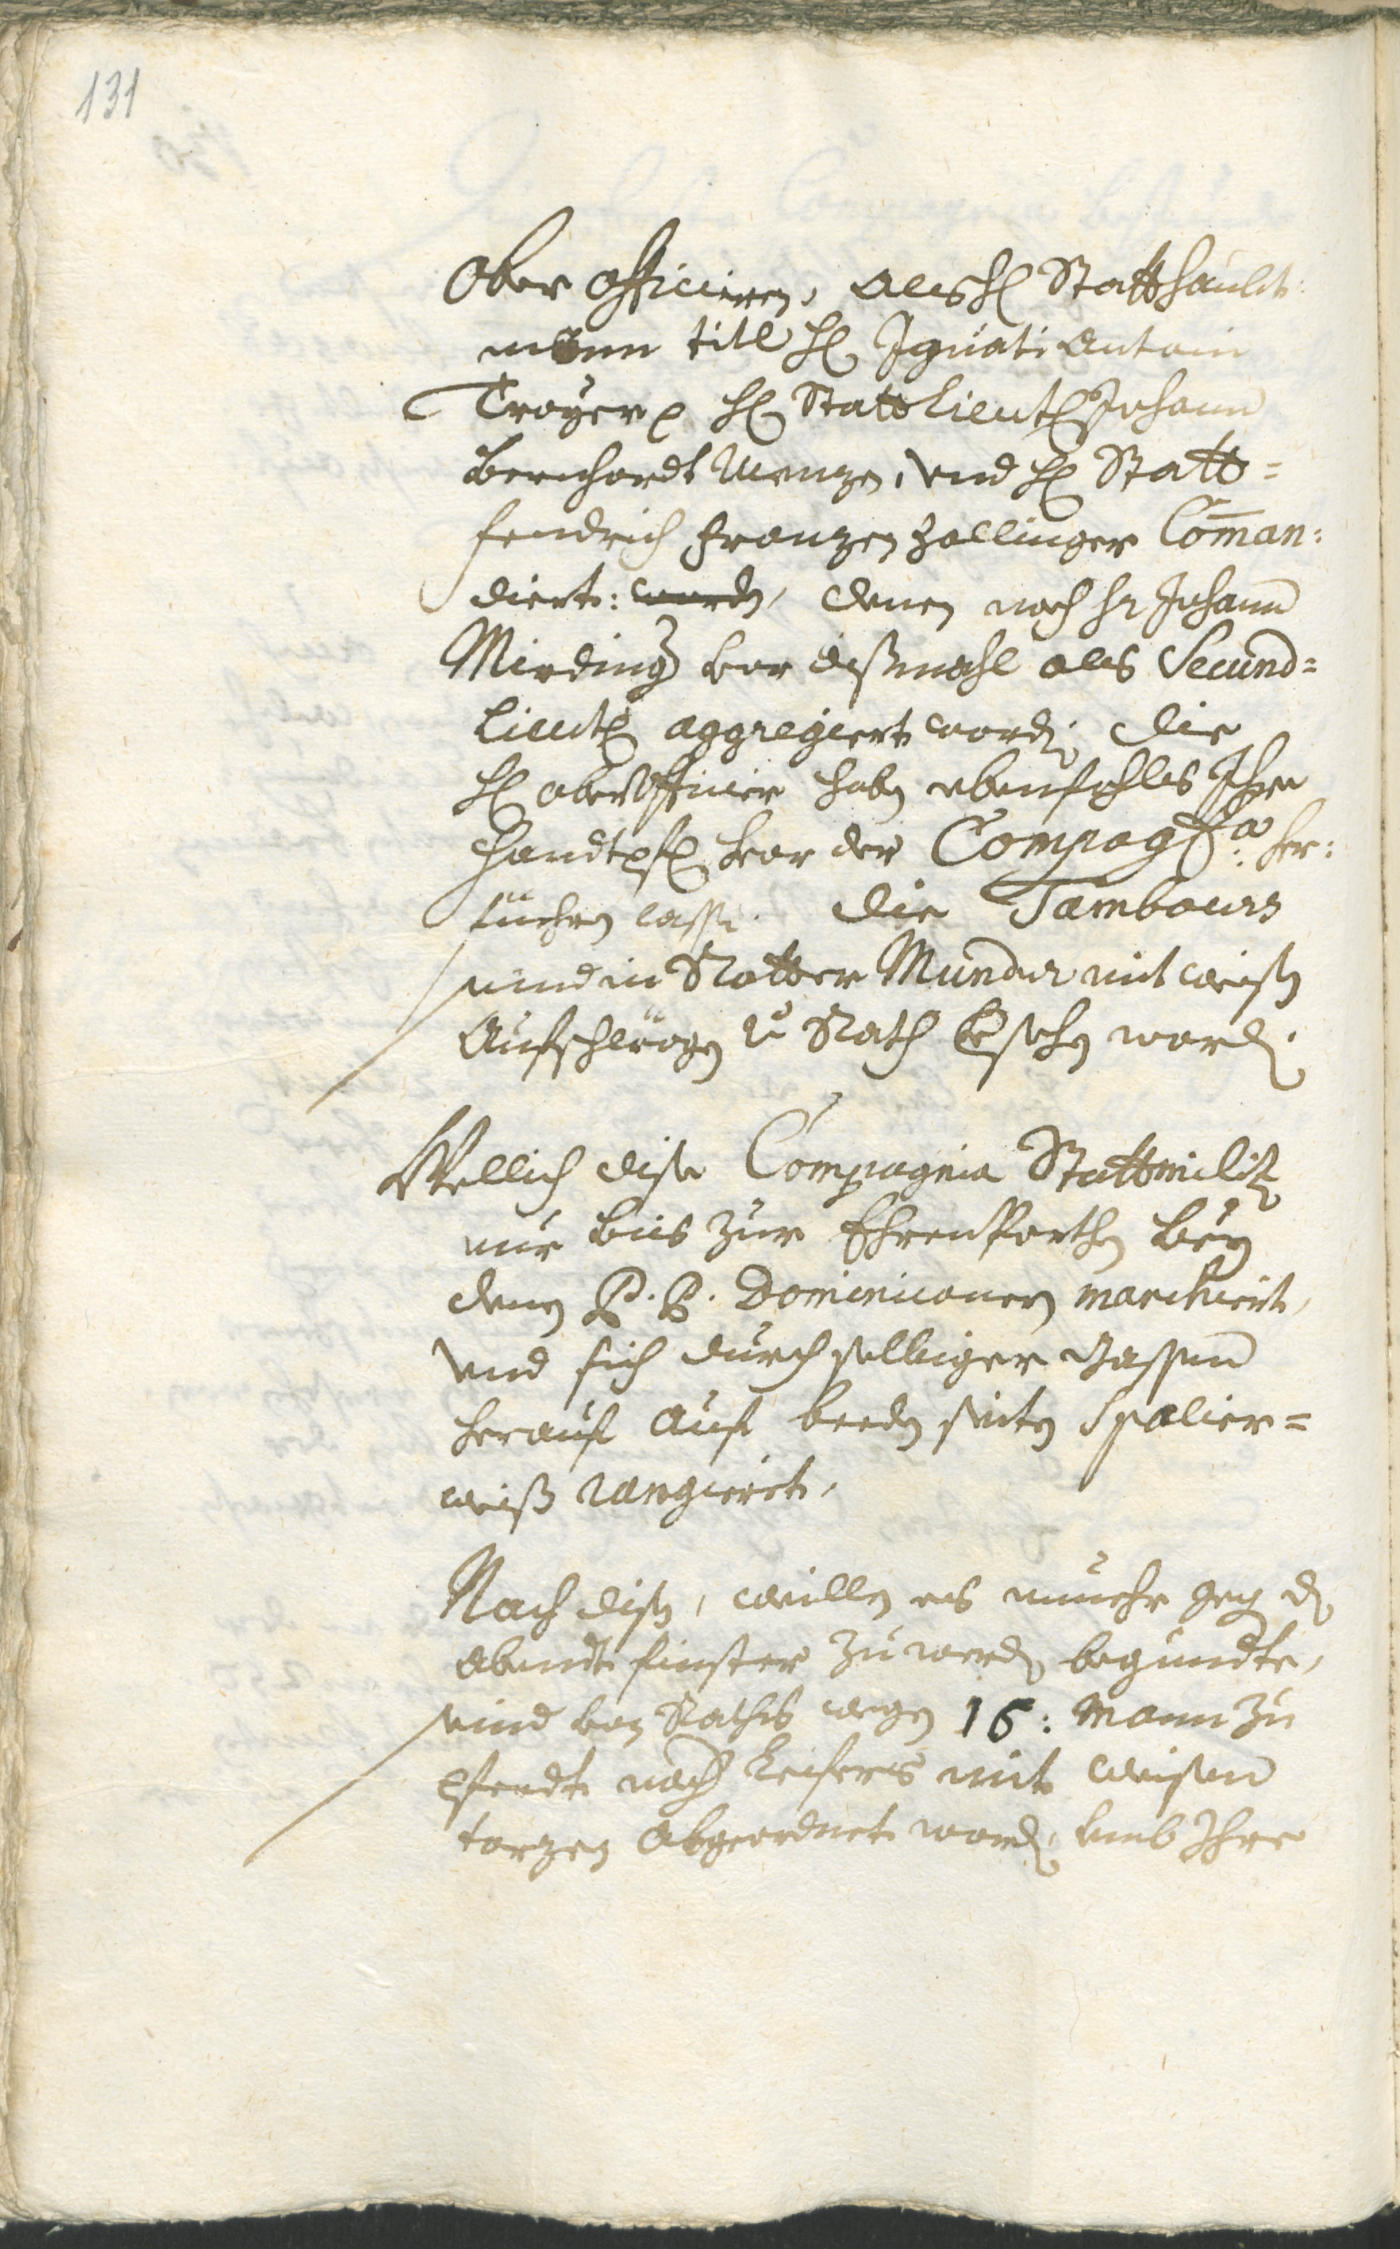 131
Ober Officieren, als H Statthaubt
mann titl H Ignati Antoni
Troyer p H Statt Lieut Johann
Bernhardt Menzen, vnd H Statt=
fendrich Franzen Zallinger Coman:
diert: worden, denen noch hr Johann
Mirding vor dißmahl als Secund=
Lieut aggregiert word, die
H ober Officier haben ebenfahls Ihre
Handtpf vor der Compag:a her:
fuehren lassen. die Tambours
seind in Rotter Mundur mit weissen
Aufschlögen v Rath versehen word.
Wellich dise Compagnia Stattmiliz
nur bis zur Ehren Porthen bey
denen P. P. Dominicanern marchiert,
vnd sich durch selbiger Gassen
herauf auf beeden seiten Spalier=
weiß rangiert,
Nach disen, weillen es nunehr geg d
abendt finster zu werd begundte,
seind von Raths wegen 16: Mann zu
pferdt nach Leifers mit weissen
torzen abgeordnet word, vmb Ihre